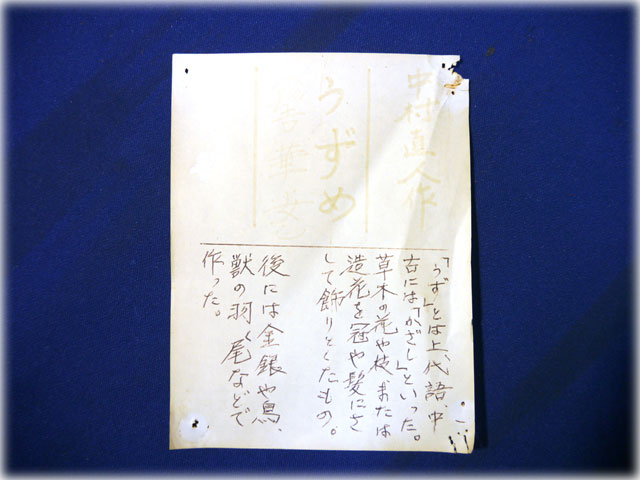 中村直人作
うずめ
華
「うず」とは上代語、中
古には「かざし」といった。
草木の花や枝または
造花を冠や髪にさ
して飾りとしたもの。
後には金銀や鳥、
獣の羽、尾などで
作った。